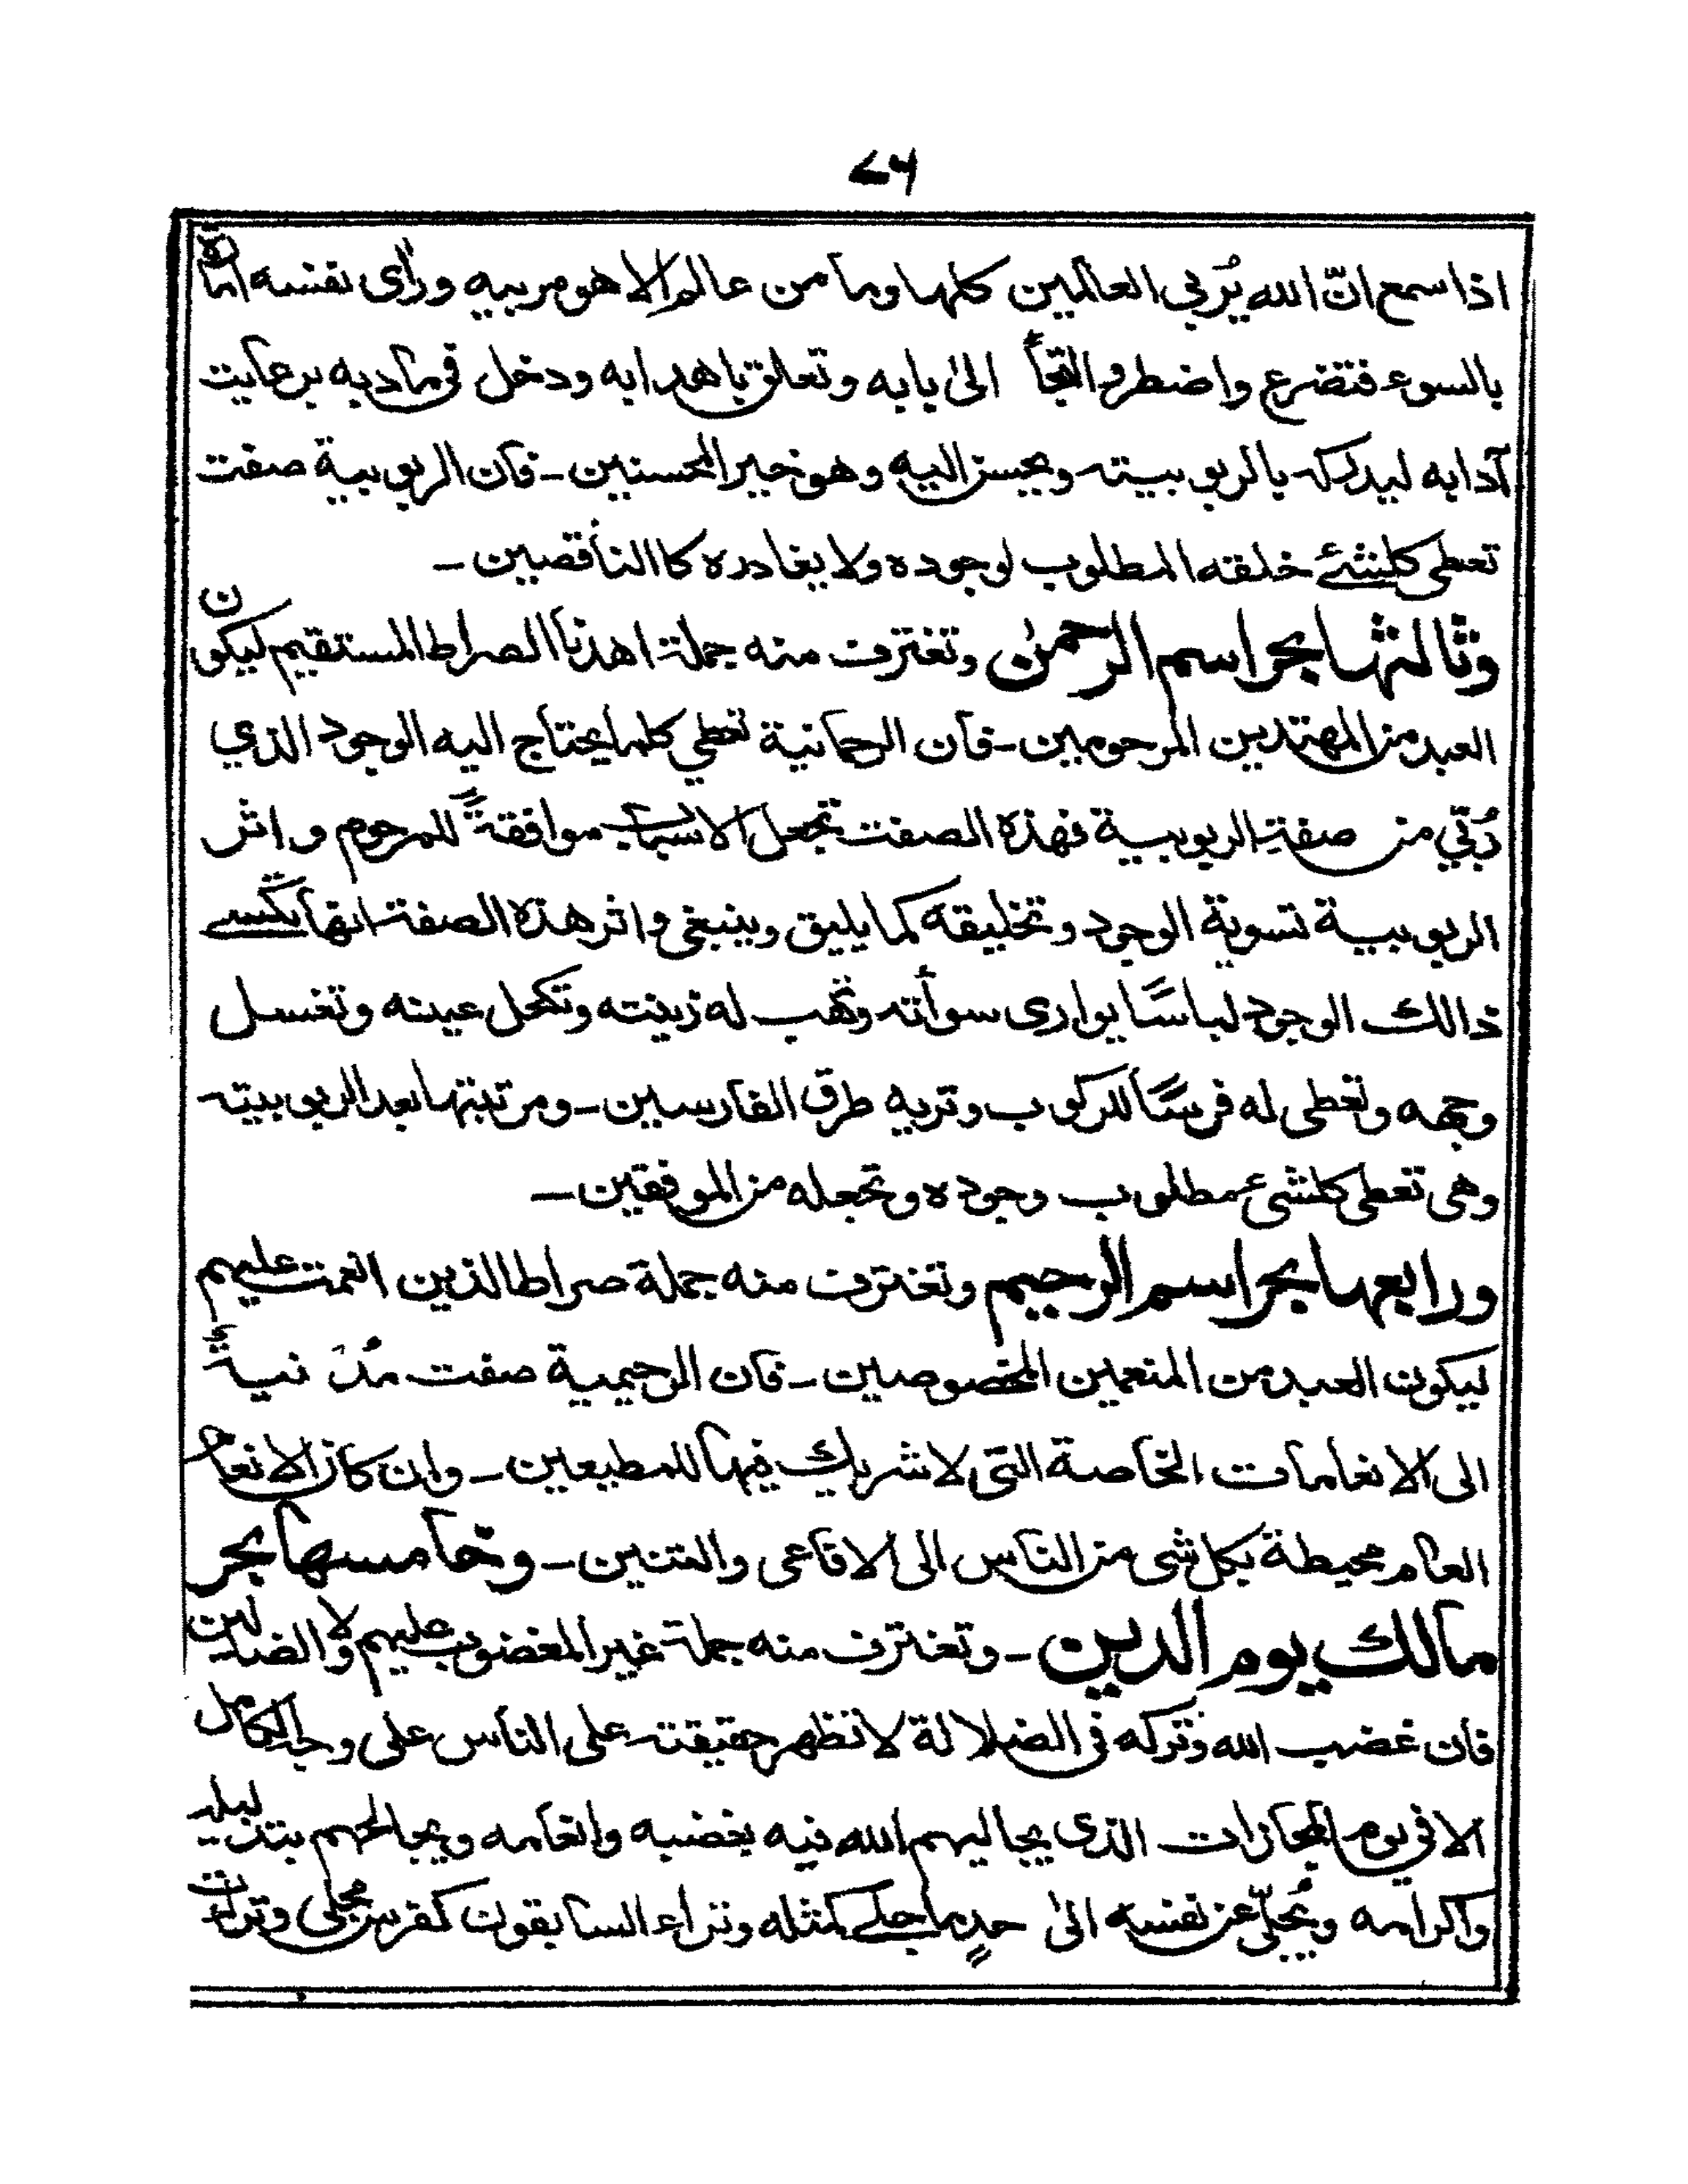 ٧٦
اذا سمع انّ الله يُربي العالمين كلها وما من عالم الا هو مربيه ورأى نفسه امّارة
بالسوء فتضرع واضطر والتجأ الىٰ بابه وتعلق باهدابه ودخل في مادبه برعايت
آدابه ليدركه بالربوبيته ويحسن اليه وهو خير المحسنين ـ فان الربوبية صفت
تعطي كلشئے خلقه المطلوب لوجوده ولا يغادره كا الناقصين ـ
وثالثها بحر اسم الرحمٰن وتغترف منه جملة اهدنا الصراط المستقيم ليكون
العبد من المهتدين المرحومين ـ فان الرحمانية تعطي كلما يحتاج اليه الوجود الذي
رُبّي من صفة الربوبية فهذه الصفت تجعل الاسباب موافقةً للمرحوم واثر
الربوبية تسوية الوجود وتخليقه كما يليق وينبغي واثر هذه الصفة انها تكسے
ذالك الوجود لباسًا يواري سوأته وتهب له زينته وتكحل عينه وتغسل
وجهه وتعطى له فرسًا للركوب وتريه طرق الفارسين ـ ومرتبتها بعد الربوبيته
وهي تعطي كلشيء مطلوب وجوده وتجعله من الموفقين ـ
ورابعها بحر اسم الرحيم وتغترف منه جملة صراط الذين انعمت عليهم
ليكون العبد من المنعمين المخصوصين ـ فان الرحيمية صفت مُدنيةٌ
الى الانعامات الخاصة التي لا شريك فيها للمطيعين ـ وان كان الانعام
العام محيطة بكل شى من الناس الى الافاعى والتنين ـ وخامسها بحر
مالك يوم الدين ـ وتغترف منه جملة غير المغضوب عليهم ولا الضالين
فان غضب الله وتركه في الضلالة لا تظهر حقيقته على الناس على وجه الكامل
الا في يوم المجازات الذى يجاليهم الله فيه بغضبه وانعامه ويجالحهم بتذليله
واكرامه ويُجلّي عن نفسه الىٰ حدٍ ما جلے كمثله وتراء السابقون كفرس مجلى وترات